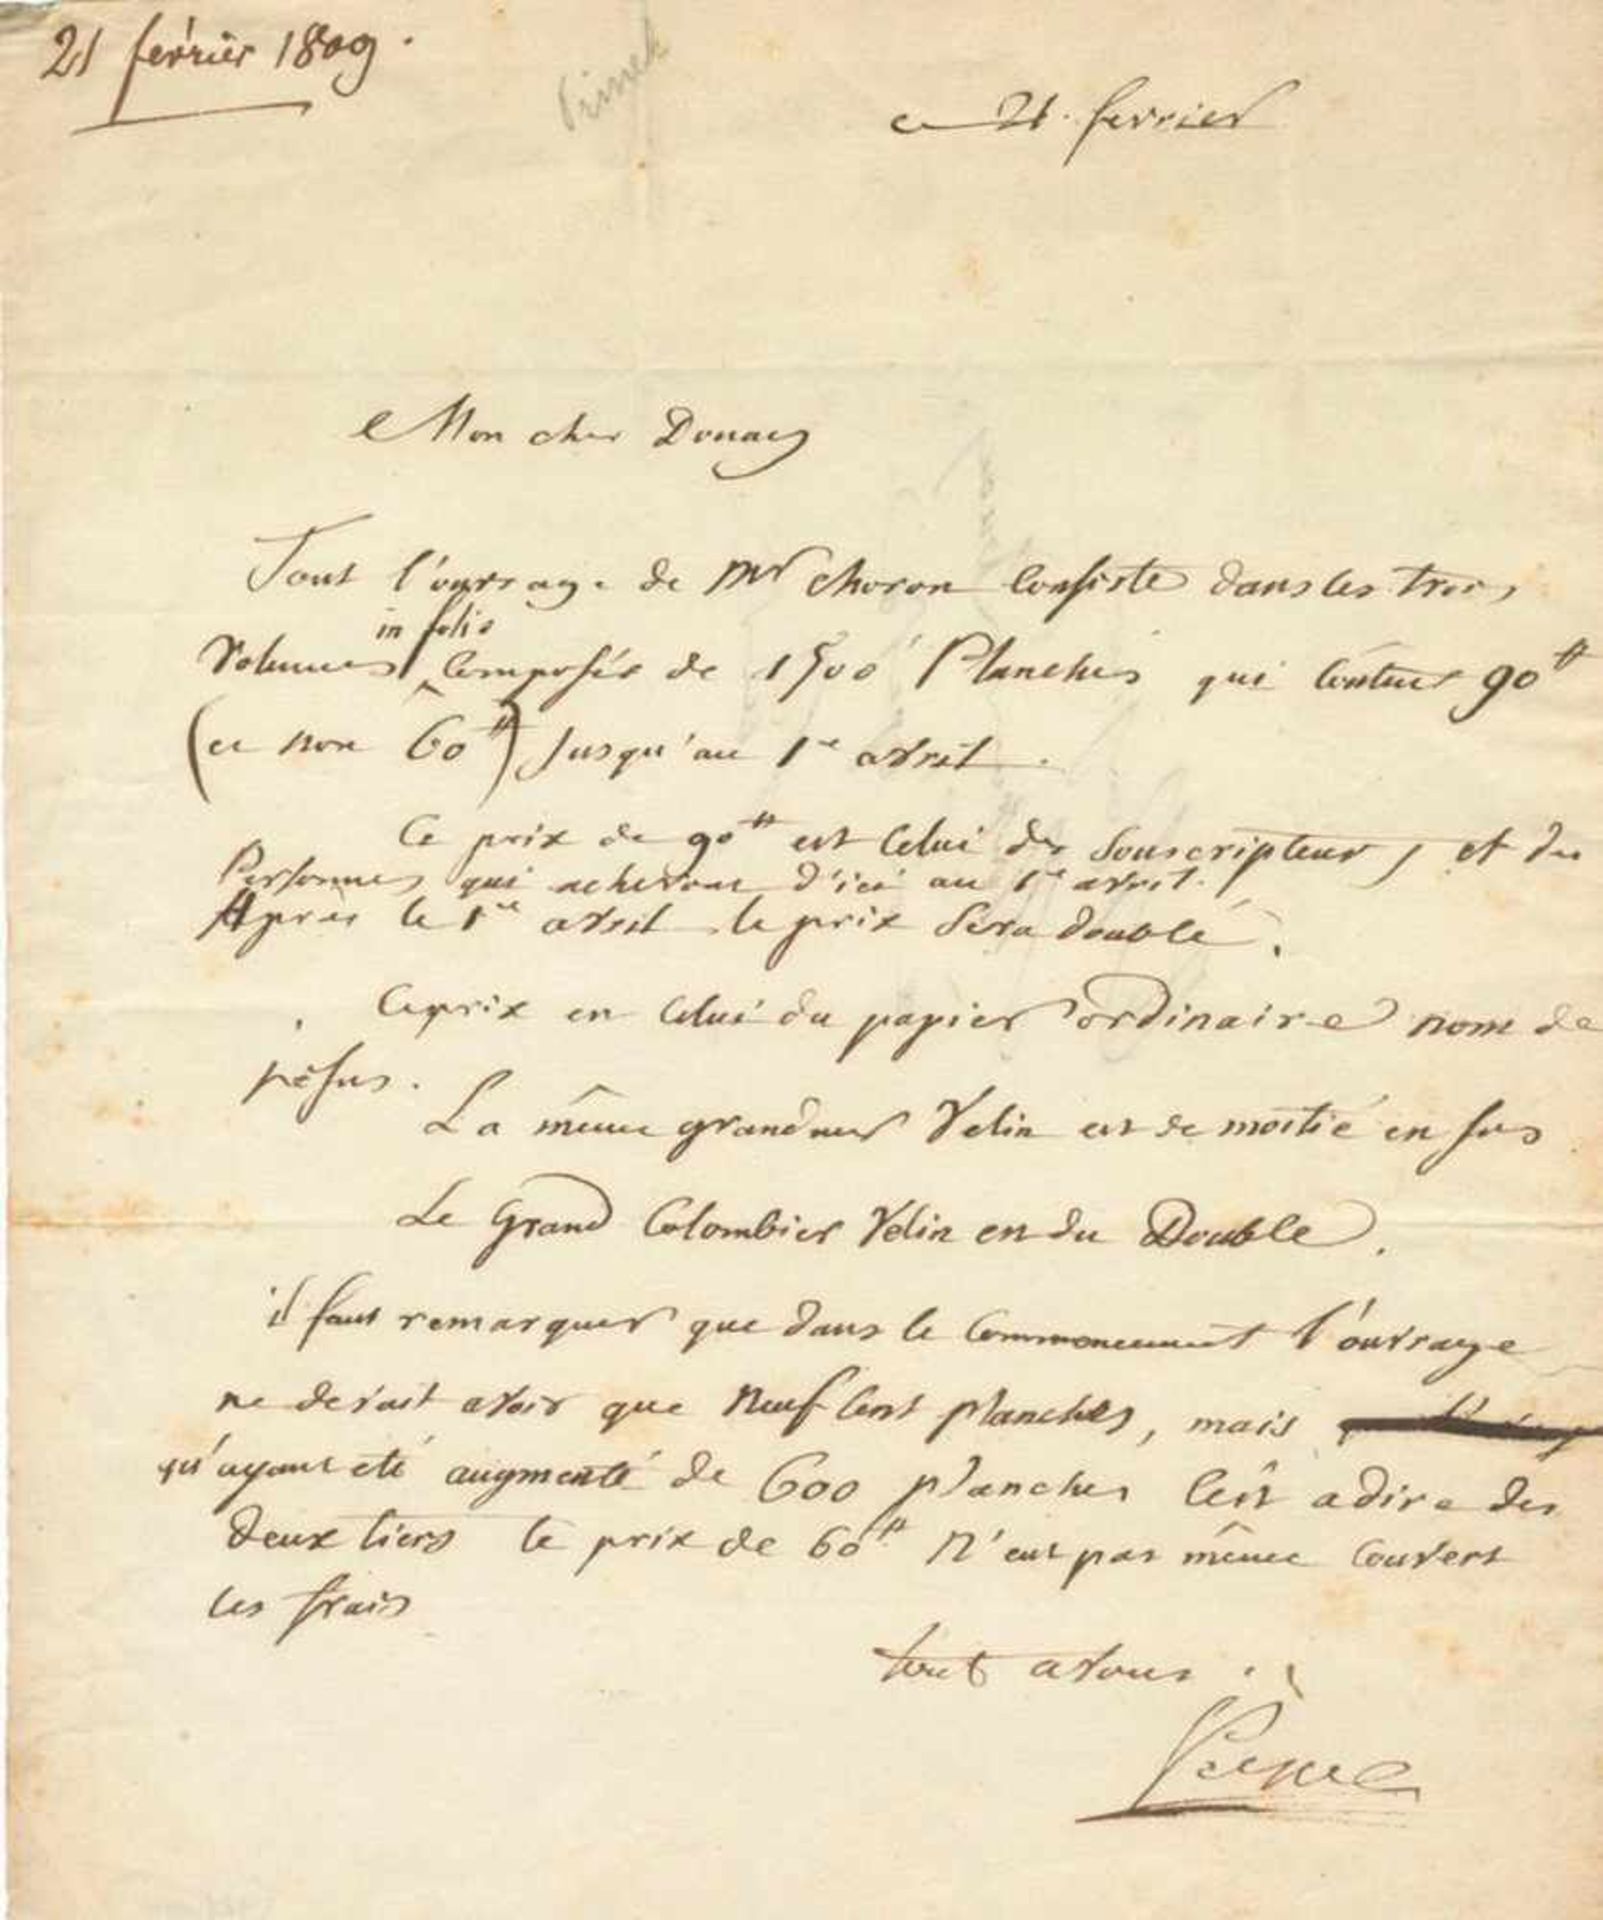 21 février 1809.
ce 21. fevrier
Mon cher Donney
Tout l'ouvrage de Mr choron Consiste dans les trois
in folio
Volumes Composés de 1500 Planches qui Coutent 90#
(et non 60#) Jusqu'au 1er avril.
Ce prix de 90# est Celui des Souscripteurs, et des
Personnes qui acheteront d'ici au 1er avril.
Après le 1er avril le prix Sera doublé.
Ce prix est Celui du papier ordinaire nom de
jésus.
La même grandeur Velin est de moitié en sus
Le Grand Colombier Velin est du Double.
il faut remarquer que dans le Commencement l'ouvrage
ne devait avoir que Neuf Cent planches, mais
qu'ayant été augmenté de 600 planches C'est a dire des
deux tiers le prix de 60# N'eut pas même Couvert
les frais
tout a vous